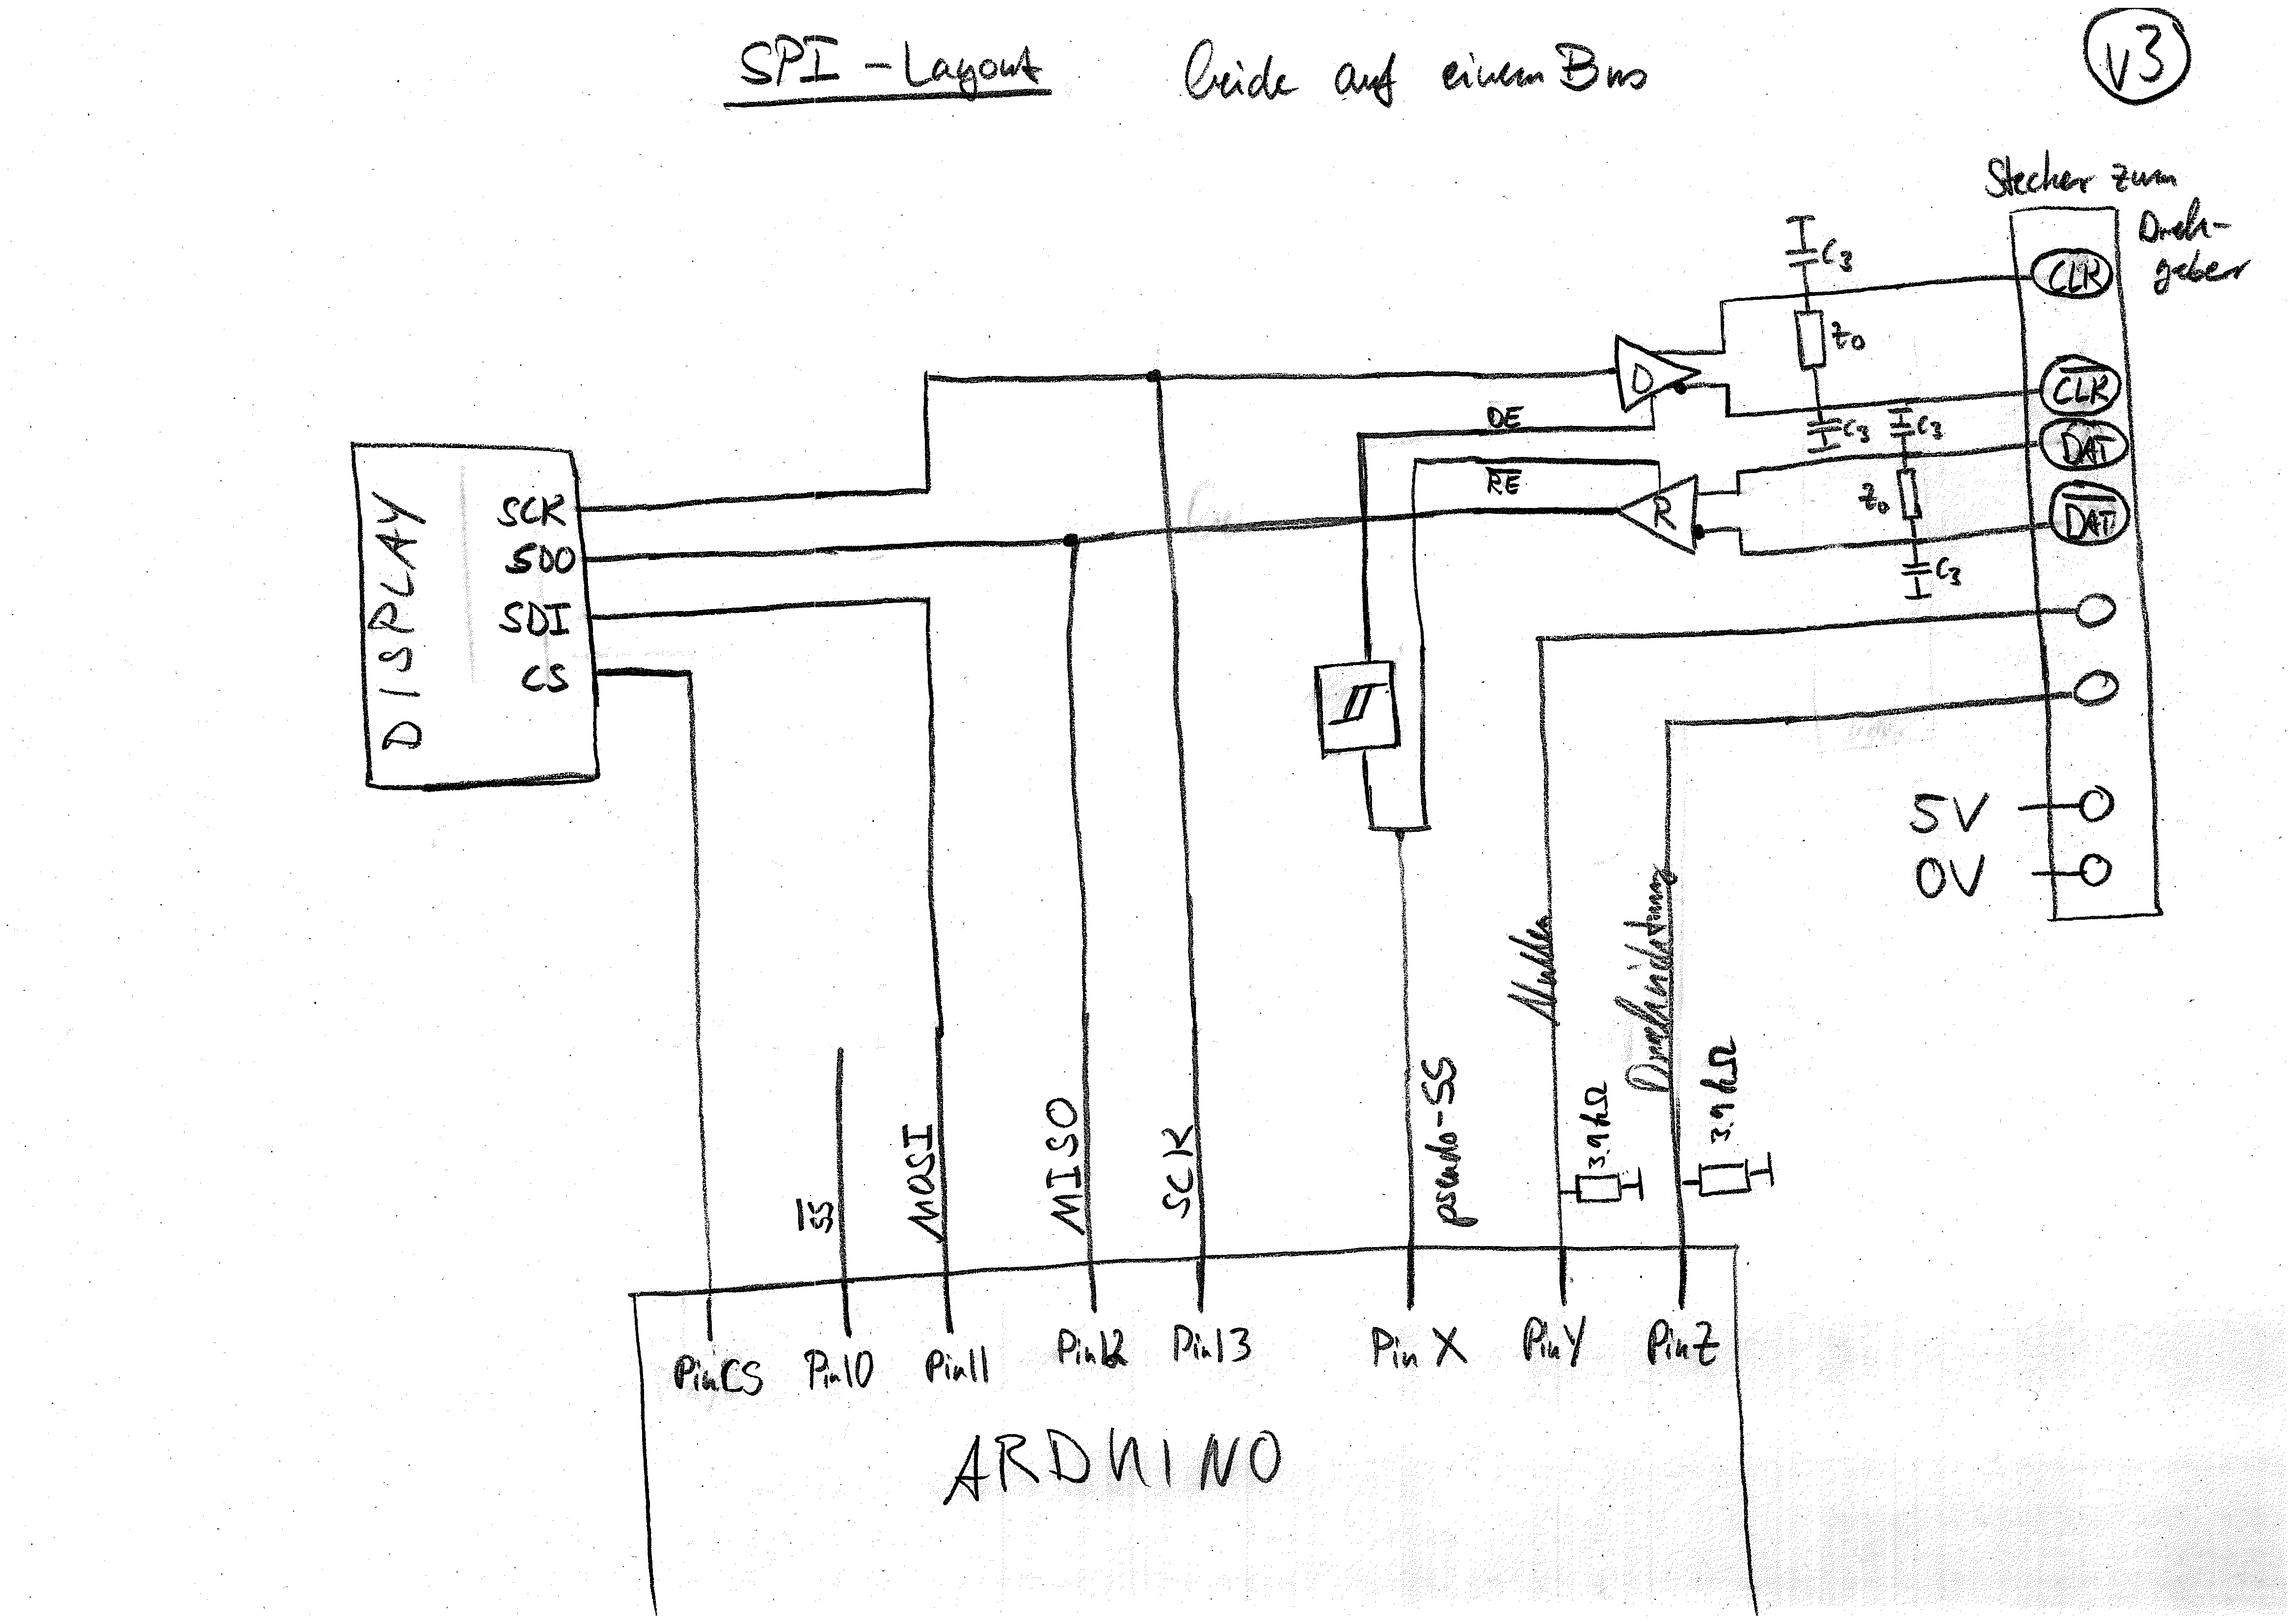 SPI - Layout beide auf einem Bus
v3
Stecker zum
Dreh-
geber
C3
CLK
Z0
CLK
C3
C3
DE
DAT
RE
R
D
Z0
DAT
C3
DISPLAY
SCK
SDO
SDI
CS
5V
0V
Nullen
Drehrichtung
SS
MOSI
MISO
SCK
pseudo-SS
3.9kΩ
3.9kΩ
PinCS
Pin10
Pin11
Pin12
Pin13
PinX
PinY
PinZ
ARDUINO